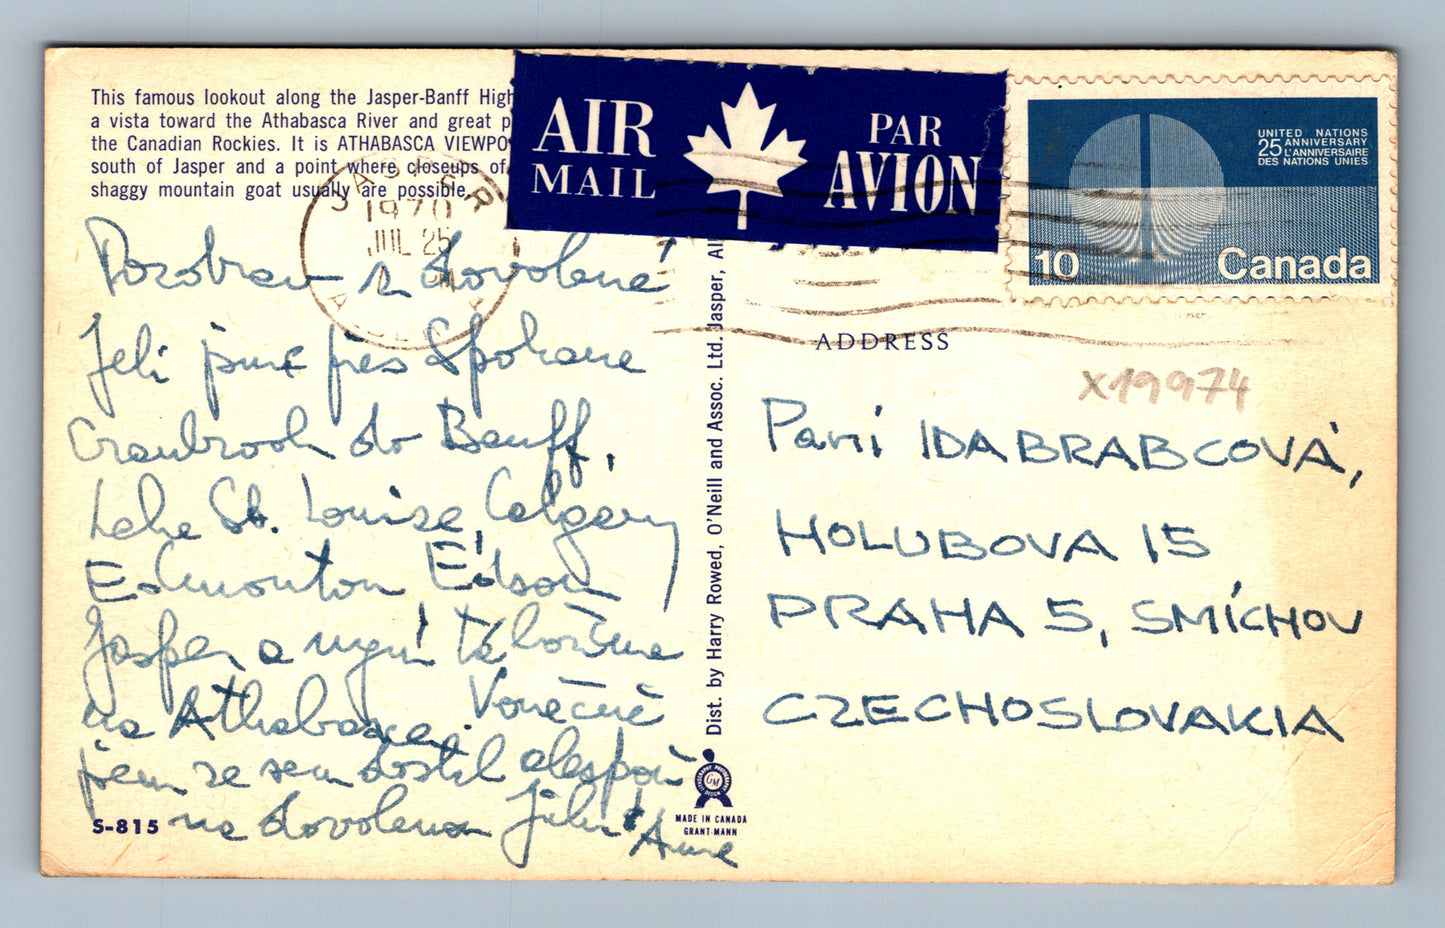 This famous lookout along the Jasper-Banff High
a vista toward the Athabasca River and great p
the Canadian Rockies. It is ATHABASCA VIEWPO
south of Jasper and a point where closeups of
shaggy mountain goat usually are possible.
AIR MAIL
PAR AVION
UNITED NATIONS
25 ANNIVERSARY
L'ANNIVERSAIRE
DES NATIONS UNIES
10 Canada
JASPER
1970
JUL 25
ALBERTA
Pozdrav z dovolené
Jeli jsme přes Spokane
Cranbrook do Banff,
Lake St. Louise, Calgary
Edmonton Edson
Jasper a nyní táboříme
na Athabasce. Konečně
jsem se sem dostal alespoň
na dovolenou
Anne
S-815
Dist. by Harry Rowed, O'Neill and Assoc. Ltd. Jasper, Al
GM
MADE IN CANADA
GRANT-MANN
ADDRESS
X19974
Paní IDA BRABCOVÁ,
HOLUBOVA 15
PRAHA 5, SMÍCHOV
CZECHOSLOVAKIA